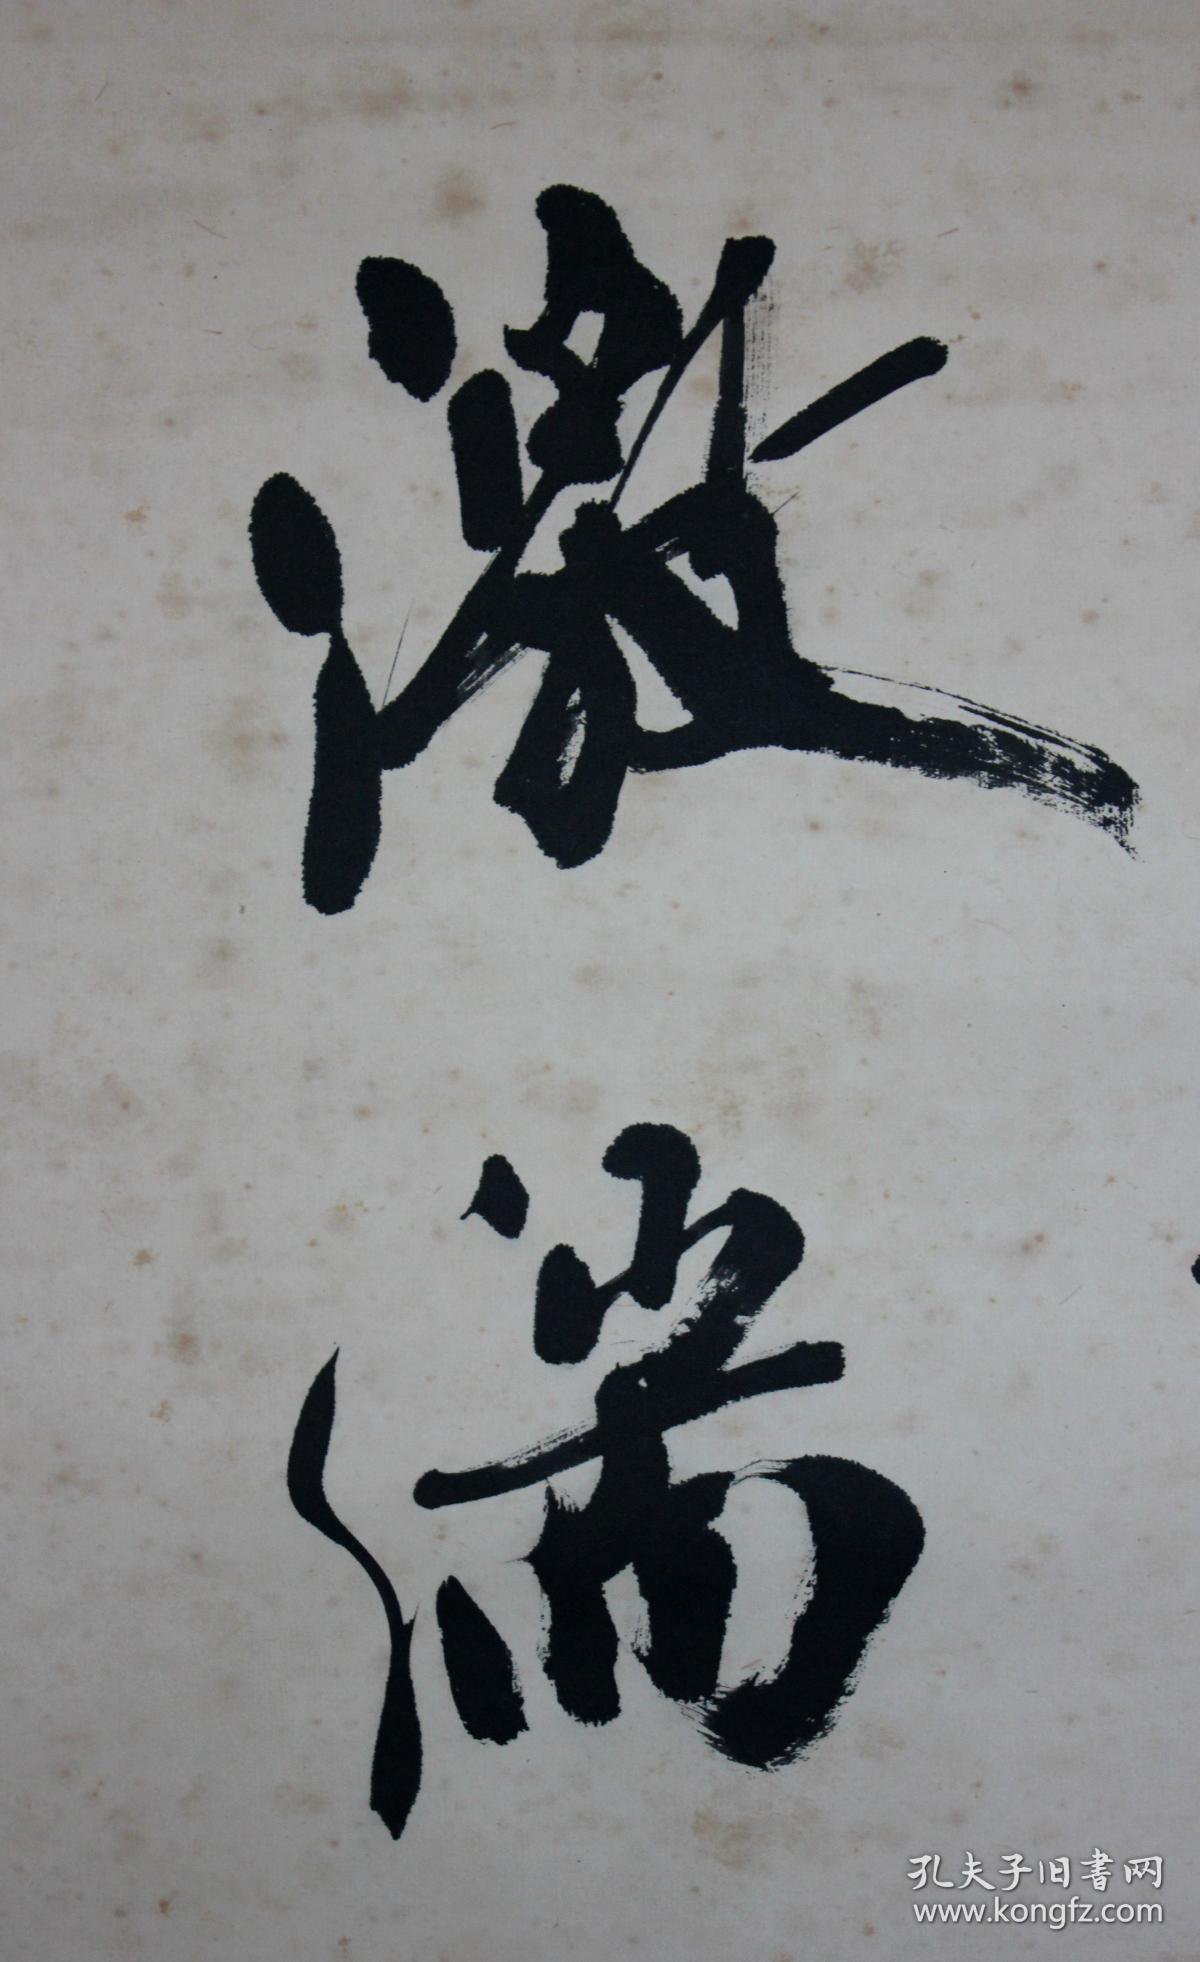 激湍
孔夫子旧書网
www.kongfz.com